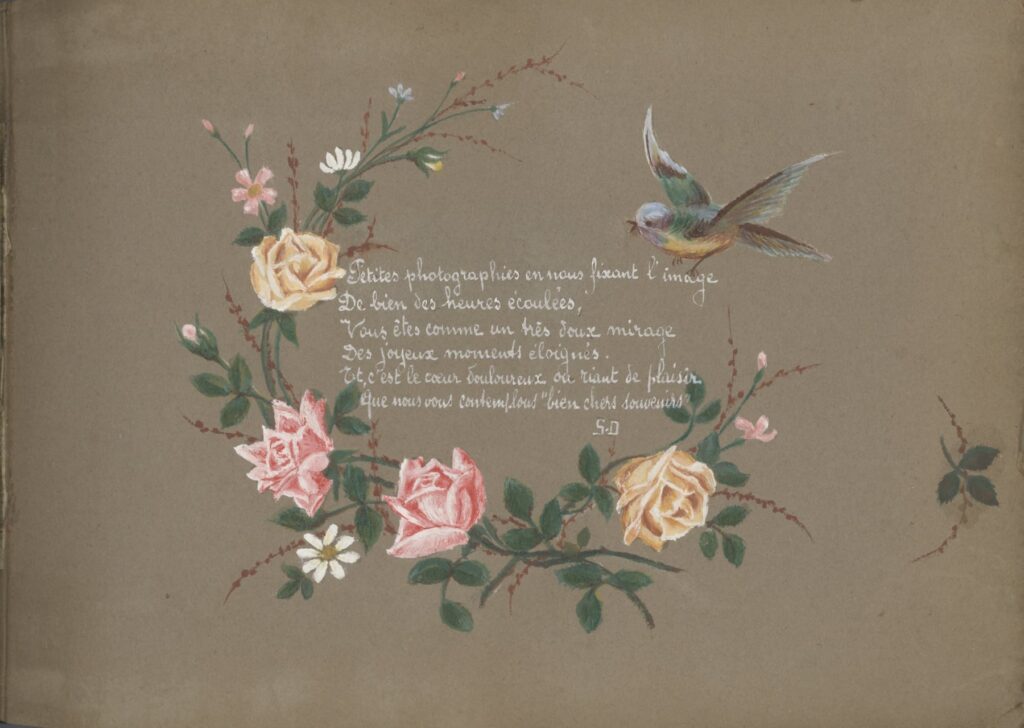 Petites photographies en nous fixant l'image
De bien des heures écoulées,
Vous êtes comme un très doux mirage
Des joyeux moments éloignés.
Et, c'est le cœur douloureux ou riant de plaisir
Que nous vous contemplons "bien chers souvenirs"
S.D